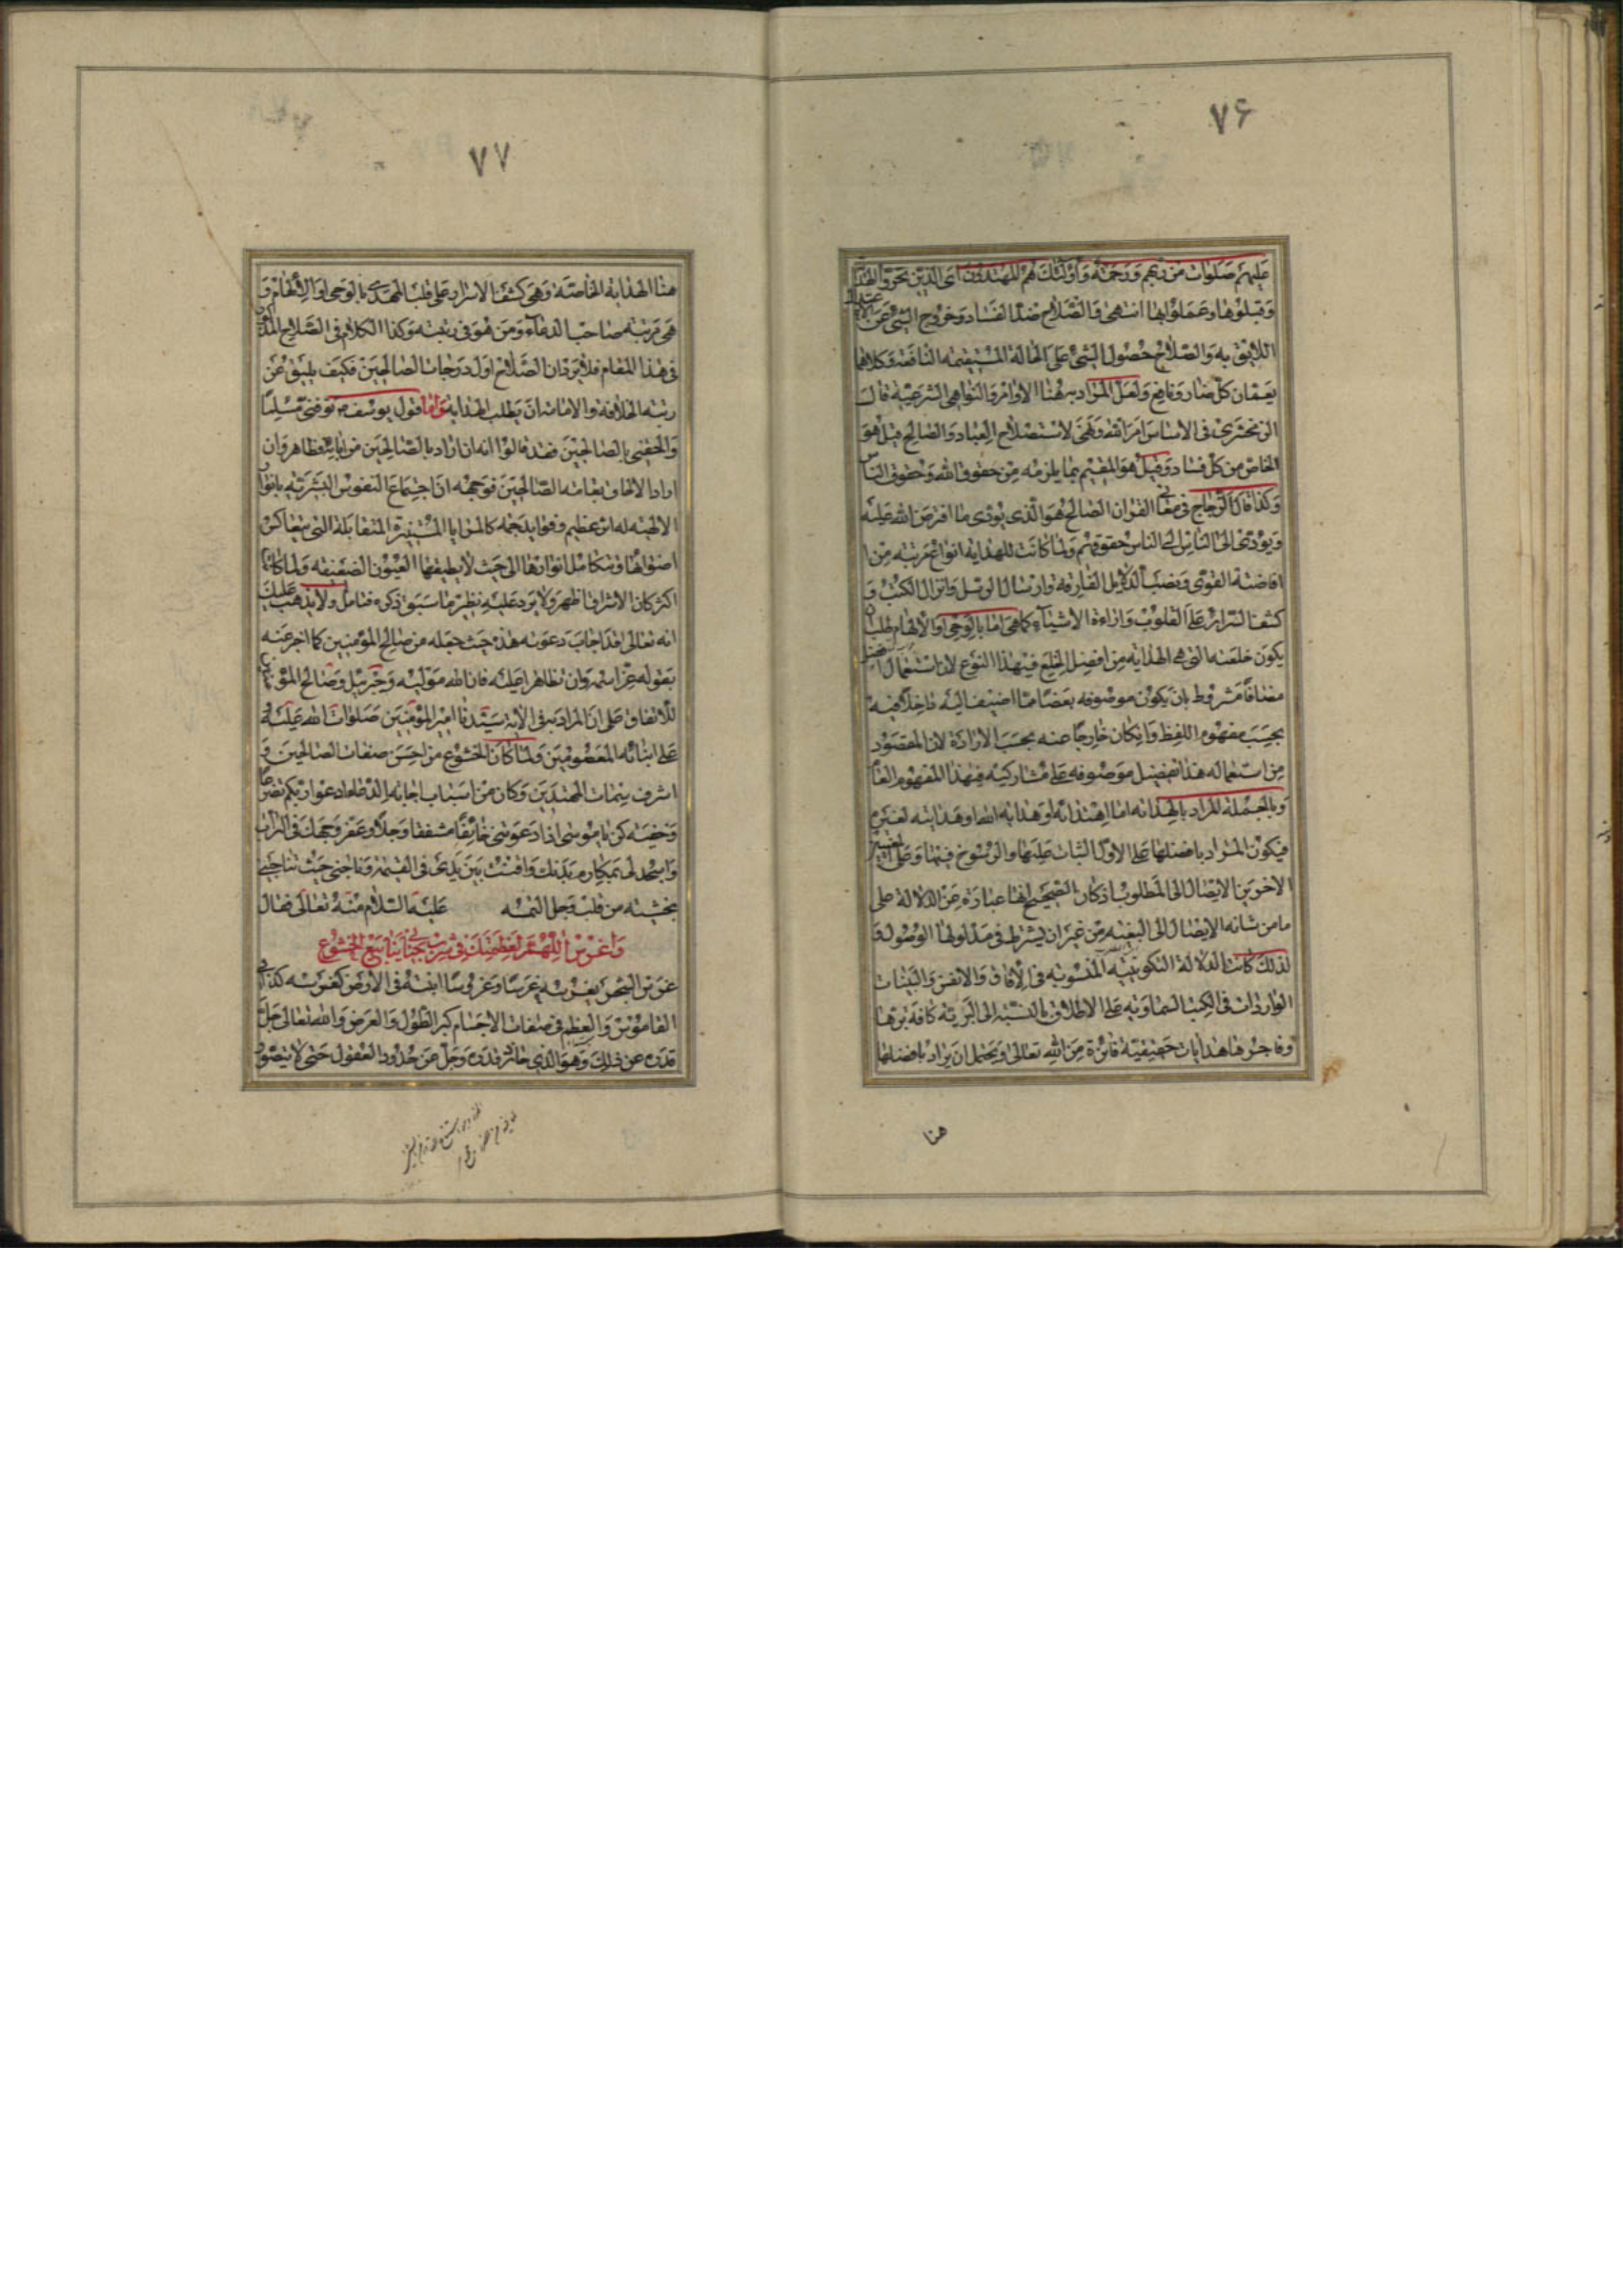 ۷۶
عليهم صلوات من ربهم ورحمة واولئك هم المهتدون اى الذين تحروا الهداية
وقبلوها وعملوا بها انتهى فالصلاح ضد الفساد وخروج الشئ عن
اللايق به والصلاح حصول الشئ على الحالة المستقيمة النافعة وكلاهما
يعمان كل ضار ونافع ولعل المراد به هنا الاوامر والنواهى الشرعية قال
الزمخشرى فى الاساس امر الله ونهى لاستصلاح العباد والصالح قيل هو
الخاص من كل فساد وقيل هو المقيم بما يلزمه من حقوق الله وحقوق الناس
وكذا قال الزجاج فى معانى القران الصالح هو الذى يودى ما افترض الله عليه
ويؤدى الى الناس حقوقهم ولما كانت للهداية انواع مرتبة من
افاضة القوى ونصب الدلايل الفارقة وارسال الرسل وانزال الكتب و
كشف السراير على القلوب واراءة الاشياء كما هى اما بالوحى او الالهام طلب ان
يكون خلعته التى هى الهداية من افضل الخلع فى هذا النوع لان استعمال افضل
مضافا مشروط بان يكون موصوفه بعضا مما اضيف اليه داخلا فيه
بحسب مفهوم اللفظ وان كان خارجا عنه بحسب الارادة لان المقصود
من استعماله هذا تفضيل موصوفه على مشاركيه فى هذا المفهوم العام
وبالجملة المراد بالهداية اما اهتدائه او هداية الله او هدايته لغيره
فيكون المراد بافضلها على الاول الثبات عليها والرسوخ فيها وعلى
الاخرين الايصال الى المطلوب اذ كان الصحيح انها عبارة عن الدلالة على
ما من شانه الايصال الى البغية من غير ان يشترط فى مدلولها الوصول و
لذلك كانت الدلالة التكوينية المنسوبة فى الافاق والانفس والبينات
الواردات فى الكتب السماوية على الاطلاق بالنسبة الى البرية كافة برها
وفاجرها هدايات حقيقية فائزة من الله تعالى ويحتمل ان يراد بافضلها
هنا
۷۷
هنا الهداية الخاصة وهى كشف الاسرار على قلب المهدى بالوحى او الالهام و
هى مرتبة صاحب الدعاء ومن هو فى رتبته وكذا الكلام فى الصلاح المذكور
فى هذا المقام فلا يرد ان الصلاح اول درجات الصالحين فكيف يليق عن
رتبة الخلافة والامامة ان يطلب الهداية واما قول يوسف توفنى مسلما
والحقنى بالصالحين فقد قالوا انه ان اراد بالصالحين من ابائه فظاهر وان
اراد الالحاق بعامة الصالحين فوجهه ان اجتماع النفوس البشرية بانوار
الالهية له اثر عظيم وفوايد جمة كالمرايا المستنيرة المتقابلة التى يتعاكس
اضوائها وتتكامل انوارها الى حيث لا يطيقها العيون الضعيفة ولما كانا
اكثر كان الاشراق اظهر ولا يرد عليه نظير ما سبق ذكره فتامل ولا يذهب عليك
انه تعالى قد اجاب دعوته هذه حيث جعله من صالح المؤمنين كما اخبر عنه
بقوله عز اسمه وان تظاهرا عليه فان الله موليه وجبريل وصالح المؤمنين
للاتفاق على ان المراد به فى الاية سيدنا امير المؤمنين صلوات الله عليه و
على ابنائه المعصومين ولما كان الخشوع من احسن صفات الصالحين و
اشرف سمات المهتدين وكان من اسباب اجابة الدعاء ادعوا ربكم تضرعا
وخفية كن يا موسى اذا دعوتنى خائفا مشفقا وجلا وعفر وجهك فى التراب
واسجد لى بمكارم بدنك واقنت بين يدى فى القيام وناجنى حيث تناجينى
بخشية من قلب وجل التمسه عليه السلام منه تعالى فقال
واغرس اللهم لعظمتك فى شرب جنانى ينابيع الخشوع
غرس الشجر يغرسه غرسا وغرس سا اثبته فى الارض كغرسه كذا فى
القاموس والعظم فى صفات الاجسام كبر الطول والعرض والله تعالى جل
قدره عن ذلك وهو الذى جاوز قدره وجل عن حدود العقول حتى لا يتصور